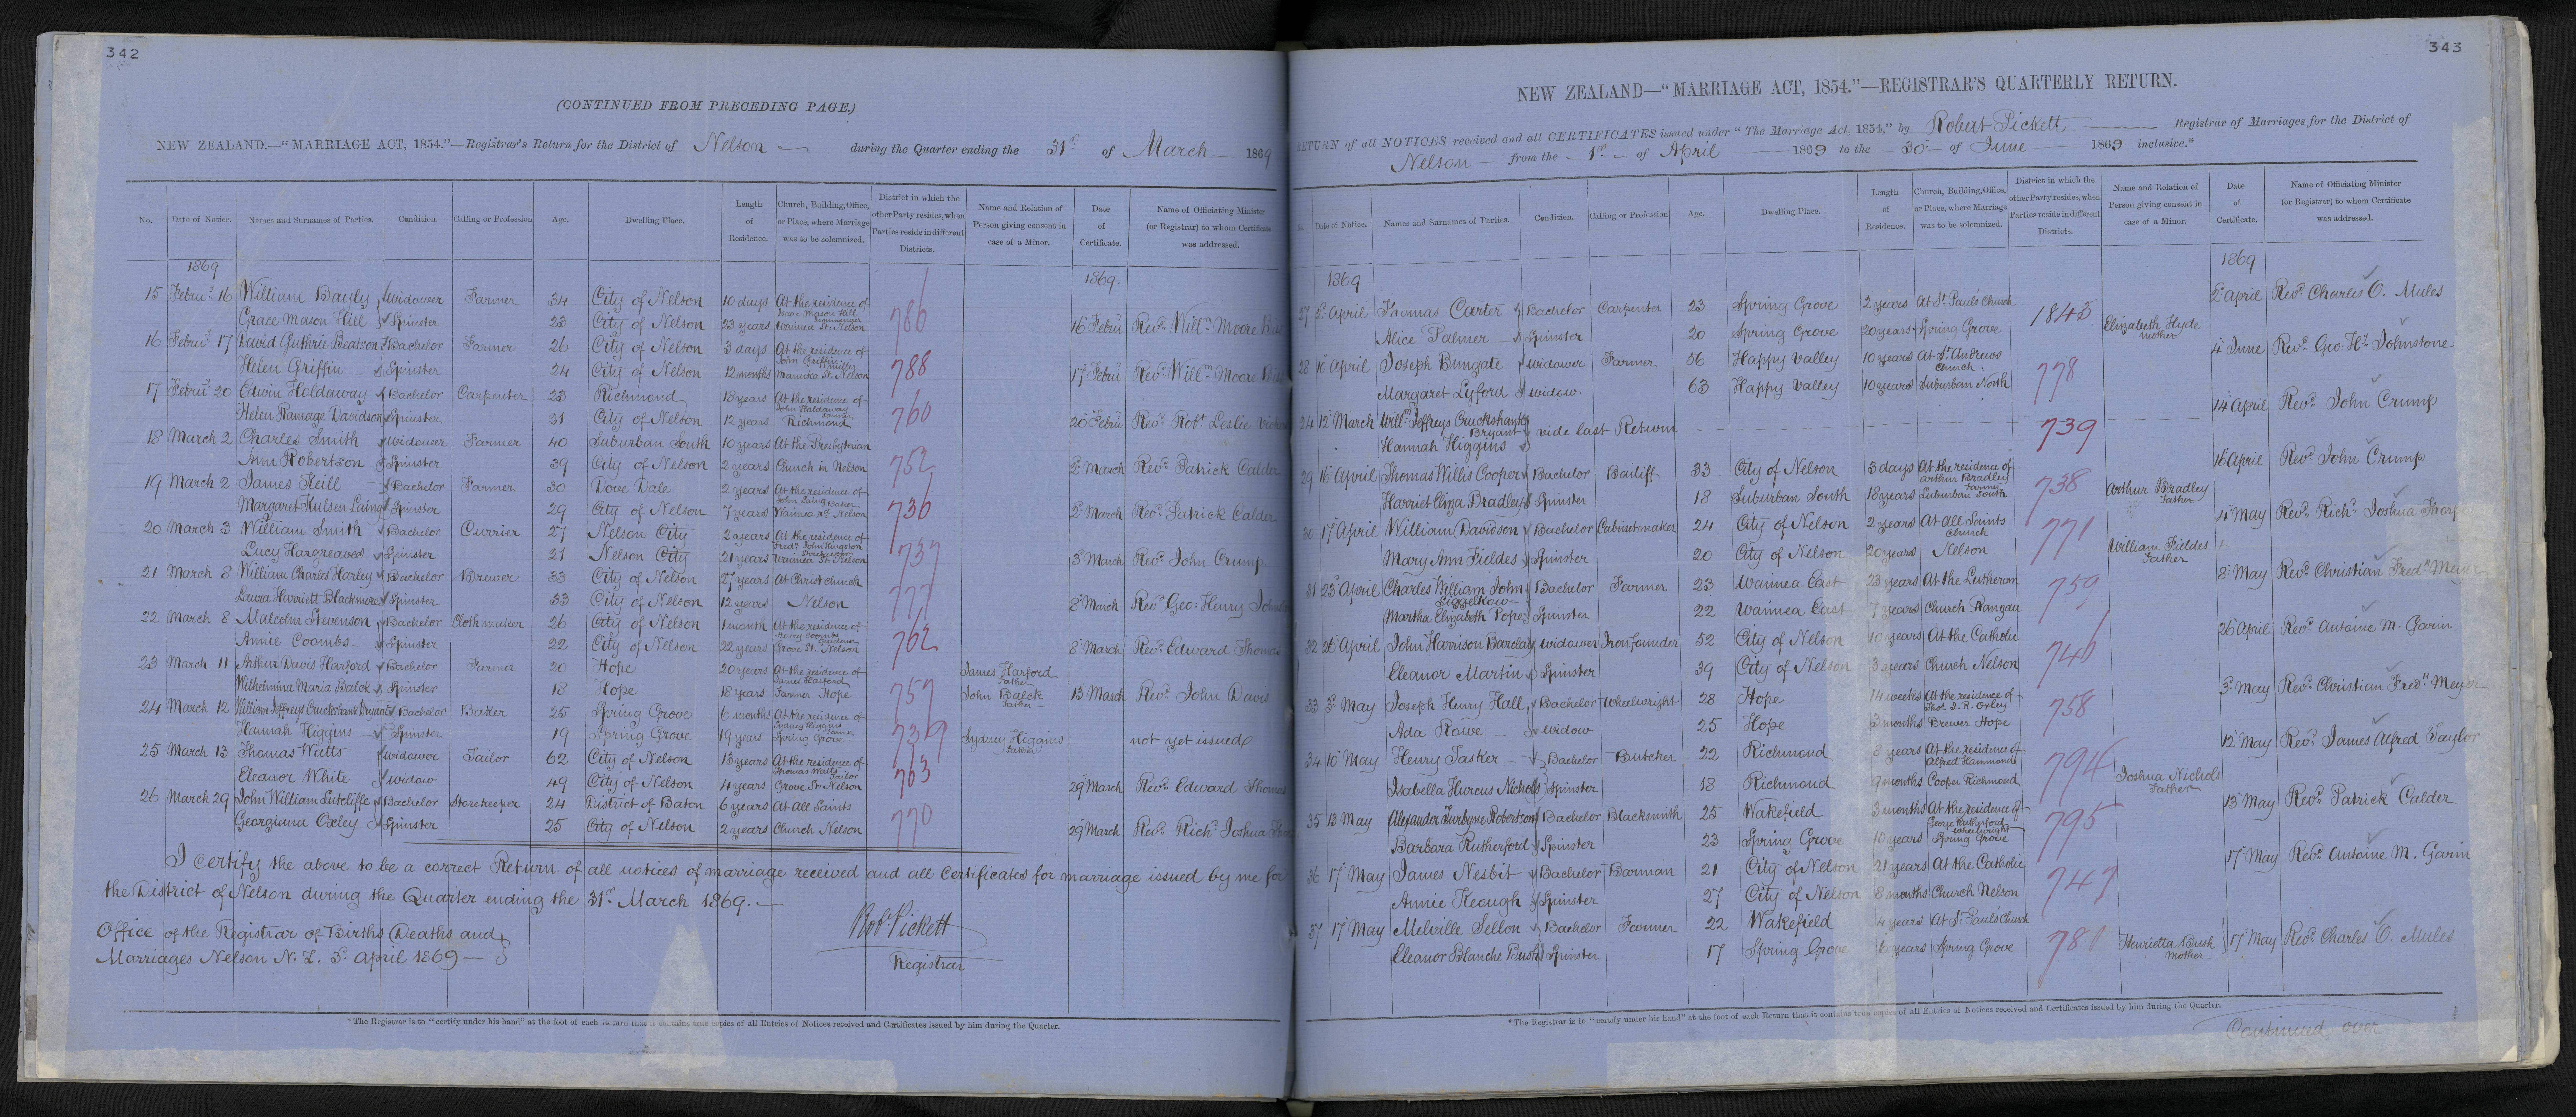 342
(CONTINUED FROM PRECEDING PAGE.)
NEW ZEALAND.—"MARRIAGE ACT, 1854."—Registrar's Return for the District of Nelson — during the Quarter ending the 31st of March — 1869
No. Date of Notice. Names and Surnames of Parties. Condition. Calling or Profession Age. Dwelling Place. Length of Residence. Church, Building, Office, or Place, where Marriage was to be solemnized. District in which the other Party resides, when Parties reside in different Districts. Name and Relation of Person giving consent in case of a Minor. Date of Certificate. Name of Officiating Minister (or Registrar) to whom Certificate was addressed.
1869 1869.
15 Febru? 16 William Bayly Widower Farmer 34 City of Nelson 10 days At the residence of Isaac Mason Hill
Grace Mason Hill Spinster 23 City of Nelson 23 years Waimea St. Nelson 786 16 Febru Revd. Willm Moore
16 Febru? 17 David Guthrie Beatson Bachelor Farmer 26 City of Nelson 3 days At the residence of John Griffin
Helen Griffin Spinster 24 City of Nelson 12 months Manuka St. Nelson 788 17 Febru Revd. Willm Moore
17 Febru? 20 Edwin Holdaway Bachelor Carpenter 23 Richmond 18 years At the residence of John Holdaway
Helen Ramage Davidson Spinster 21 City of Nelson 12 years Richmond 760 20 Febru Revd. Robt. Leslie
18 March 2 Charles Smith Widower Farmer 40 Suburban South 10 years At the Presbyterian
Ann Robertson Spinster 39 City of Nelson 2 years Church in Nelson 752 2d March Revd. Patrick Calder
19 March 2 James Keill Bachelor Farmer 30 Dove Dale 2 years At the residence of John Laing Baker
Margaret Hulsen Laing Spinster 29 City of Nelson 7 years Waimea rd. Nelson 736 2d March Revd. Patrick Calder
20 March 3 William Smith Bachelor Currier 27 Nelson City 2 years At the residence of Fredk. John Kingston Storekeeper
Lucy Hargreaves Spinster 21 Nelson City 21 years Waimea St. Nelson 737 3d March Revd. John Crump
21 March 8 William Charles Harley Bachelor Brewer 33 City of Nelson 27 years At Christchurch
Laura Harriett Blackmore Spinster 33 City of Nelson 12 years Nelson 777 8 March Revd. Geo: Henry
22 March 8 Malcolm Stevenson Bachelor Cloth maker 26 City of Nelson 1 month At the residence of Henry Coombs Gardener
Annie Coombs — Spinster 22 City of Nelson 22 years Grove St. Nelson 762 8 March Revd. Edward Thomas
23 March 11 Arthur Davis Harford Bachelor Farmer 20 Hope 20 years At the residence of James Harford James Harford Father
Wilhelmina Maria Balck Spinster 18 Hope 18 years Farmer Hope 757 John Balck Father — 15 March Revd. John Davis
24 March 12 William Jeffreys Cruckshank Bryant Bachelor Baker 25 Spring Grove 6 months At the residence of Sydney Higgins Farmer
Hannah Higgins Spinster 19 Spring Grove 19 years Spring Grove — 739 Sydney Higgins Father not yet issued
25 March 13 Thomas Watts Widower Tailor 62 City of Nelson 13 years At the residence of Thomas Watts Tailor
Eleanor White Widow 49 City of Nelson 4 years Grove St. Nelson 763 29 March Revd. Edward Thomas
26 March 29 John William Sutcliffe Bachelor Storekeeper 24 District of Baton 6 years At All Saints
Georgiana Oxley Spinster 25 City of Nelson 2 years Church Nelson 770 29 March Revd. Richd. Joshua
I certify the above to be a correct Return of all notices of marriage received and all Certificates for marriage issued by me for
the District of Nelson during the Quarter ending the 31st March 1869. —
Office of the Registrar of Births Deaths and
Marriages Nelson N. Z. 3d April 1869 —
Robt Pickett
Registrar
*The Registrar is to "certify under his hand" at the foot of each Return that it contains true copies of all Entries of Notices received and Certificates issued by him during the Quarter.
343
NEW ZEALAND—"MARRIAGE ACT, 1854."—REGISTRAR'S QUARTERLY RETURN.
RETURN of all NOTICES received and all CERTIFICATES issued under "The Marriage Act, 1854," by Robert Pickett — Registrar of Marriages for the District of
Nelson — from the 1st of April 1869 to the 30 of June 1869 inclusive.*
No. Date of Notice. Names and Surnames of Parties. Condition. Calling or Profession Age. Dwelling Place. Length of Residence. Church, Building, Office, or Place, where Marriage was to be solemnized. District in which the other Party resides, when Parties reside in different Districts. Name and Relation of Person giving consent in case of a Minor. Date of Certificate. Name of Officiating Minister (or Registrar) to whom Certificate was addressed.
1869 1869
27 2d April Thomas Carter Bachelor Carpenter 23 Spring Grove 2 years At St. Paul's Church 2d April Revd. Charles O. Mules
Alice Palmer Spinster 20 Spring Grove 20 years Spring Grove 1843 Elizabeth Hyde mother
28 10 April Joseph Bungate Widower Farmer 56 Happy Valley 10 years At St. Andrews Church 4 June Revd. Geo. Hy. Johnstone
Margaret Lyford Widow 63 Happy Valley 10 years Suburban North 778
24 12 March Willm. Jeffreys Cruckshank Bryant vide last Return 739 14 April Revd. John Crump
Hannah Higgins
29 16 April Thomas Willis Cooper Bachelor Bailiff 33 City of Nelson 3 days At the residence of Arthur Bradley Farmer 16 April Revd. John Crump
Harriet Eliza Bradley Spinster 18 Suburban South 18 years Suburban South 738 Arthur Bradley Father
30 17 April William Davidson Bachelor Cabinetmaker 24 City of Nelson 2 years At All Saints Church 4 May Revd. Richd. Joshua Thorpe
Mary Ann Fieldes Spinster 20 City of Nelson 20 years Nelson 771 William Fieldes Father
31 23d April Charles William John Siggelkow Bachelor Farmer 23 Waimea East 23 years At the Lutheran 8 May Revd. Christian Fredk. Meyer
Martha Elizabeth Pope Spinster 22 Waimea East 7 years Church Ranzau 759
32 26 April John Harrison Barclay Widower Ironfounder 52 City of Nelson 10 years At the Catholic 26 April Revd. Antoine M. Garin
Eleanor Martin Spinster 39 City of Nelson 3 years Church Nelson 746
33 3d May Joseph Henry Hall Bachelor Wheelwright 28 Hope 14 weeks At the residence of Thos. J. R. Oxley 3d May Revd. Christian Fredk. Meyer
Ada Rowe — Widow 25 Hope 3 months Brewer Hope 758
34 10 May Henry Tasker — Bachelor Butcher 22 Richmond 8 years At the residence of Alfred Hammond 12 May Revd. James Alfred Taylor
Isabella Hurcus Nichols Spinster 18 Richmond 9 months Cooper Richmond 794 Joshua Nichols Father
35 13 May Alexander Turbyne Robertson Bachelor Blacksmith 25 Wakefield 3 months At the residence of George Rutherford Wheelwright 13 May Revd. Patrick Calder
Barbara Rutherford Spinster 23 Spring Grove 10 years Spring Grove 795
36 17 May James Nesbit Bachelor Barman 21 City of Nelson 21 years At the Catholic 17 May Revd. Antoine M. Garin
Annie Keough Spinster 27 City of Nelson 8 months Church Nelson 747
37 17 May Melville Sellon Bachelor Farmer 22 Wakefield 4 years At St. Paul's Church
Eleanor Blanche Bush Spinster 17 Spring Grove 6 years Spring Grove 780 Henrietta Bush Mother 17 May Revd. Charles O. Mules
*The Registrar is to "certify under his hand" at the foot of each Return that it contains true copies of all Entries of Notices received and Certificates issued by him during the Quarter.
Continued over